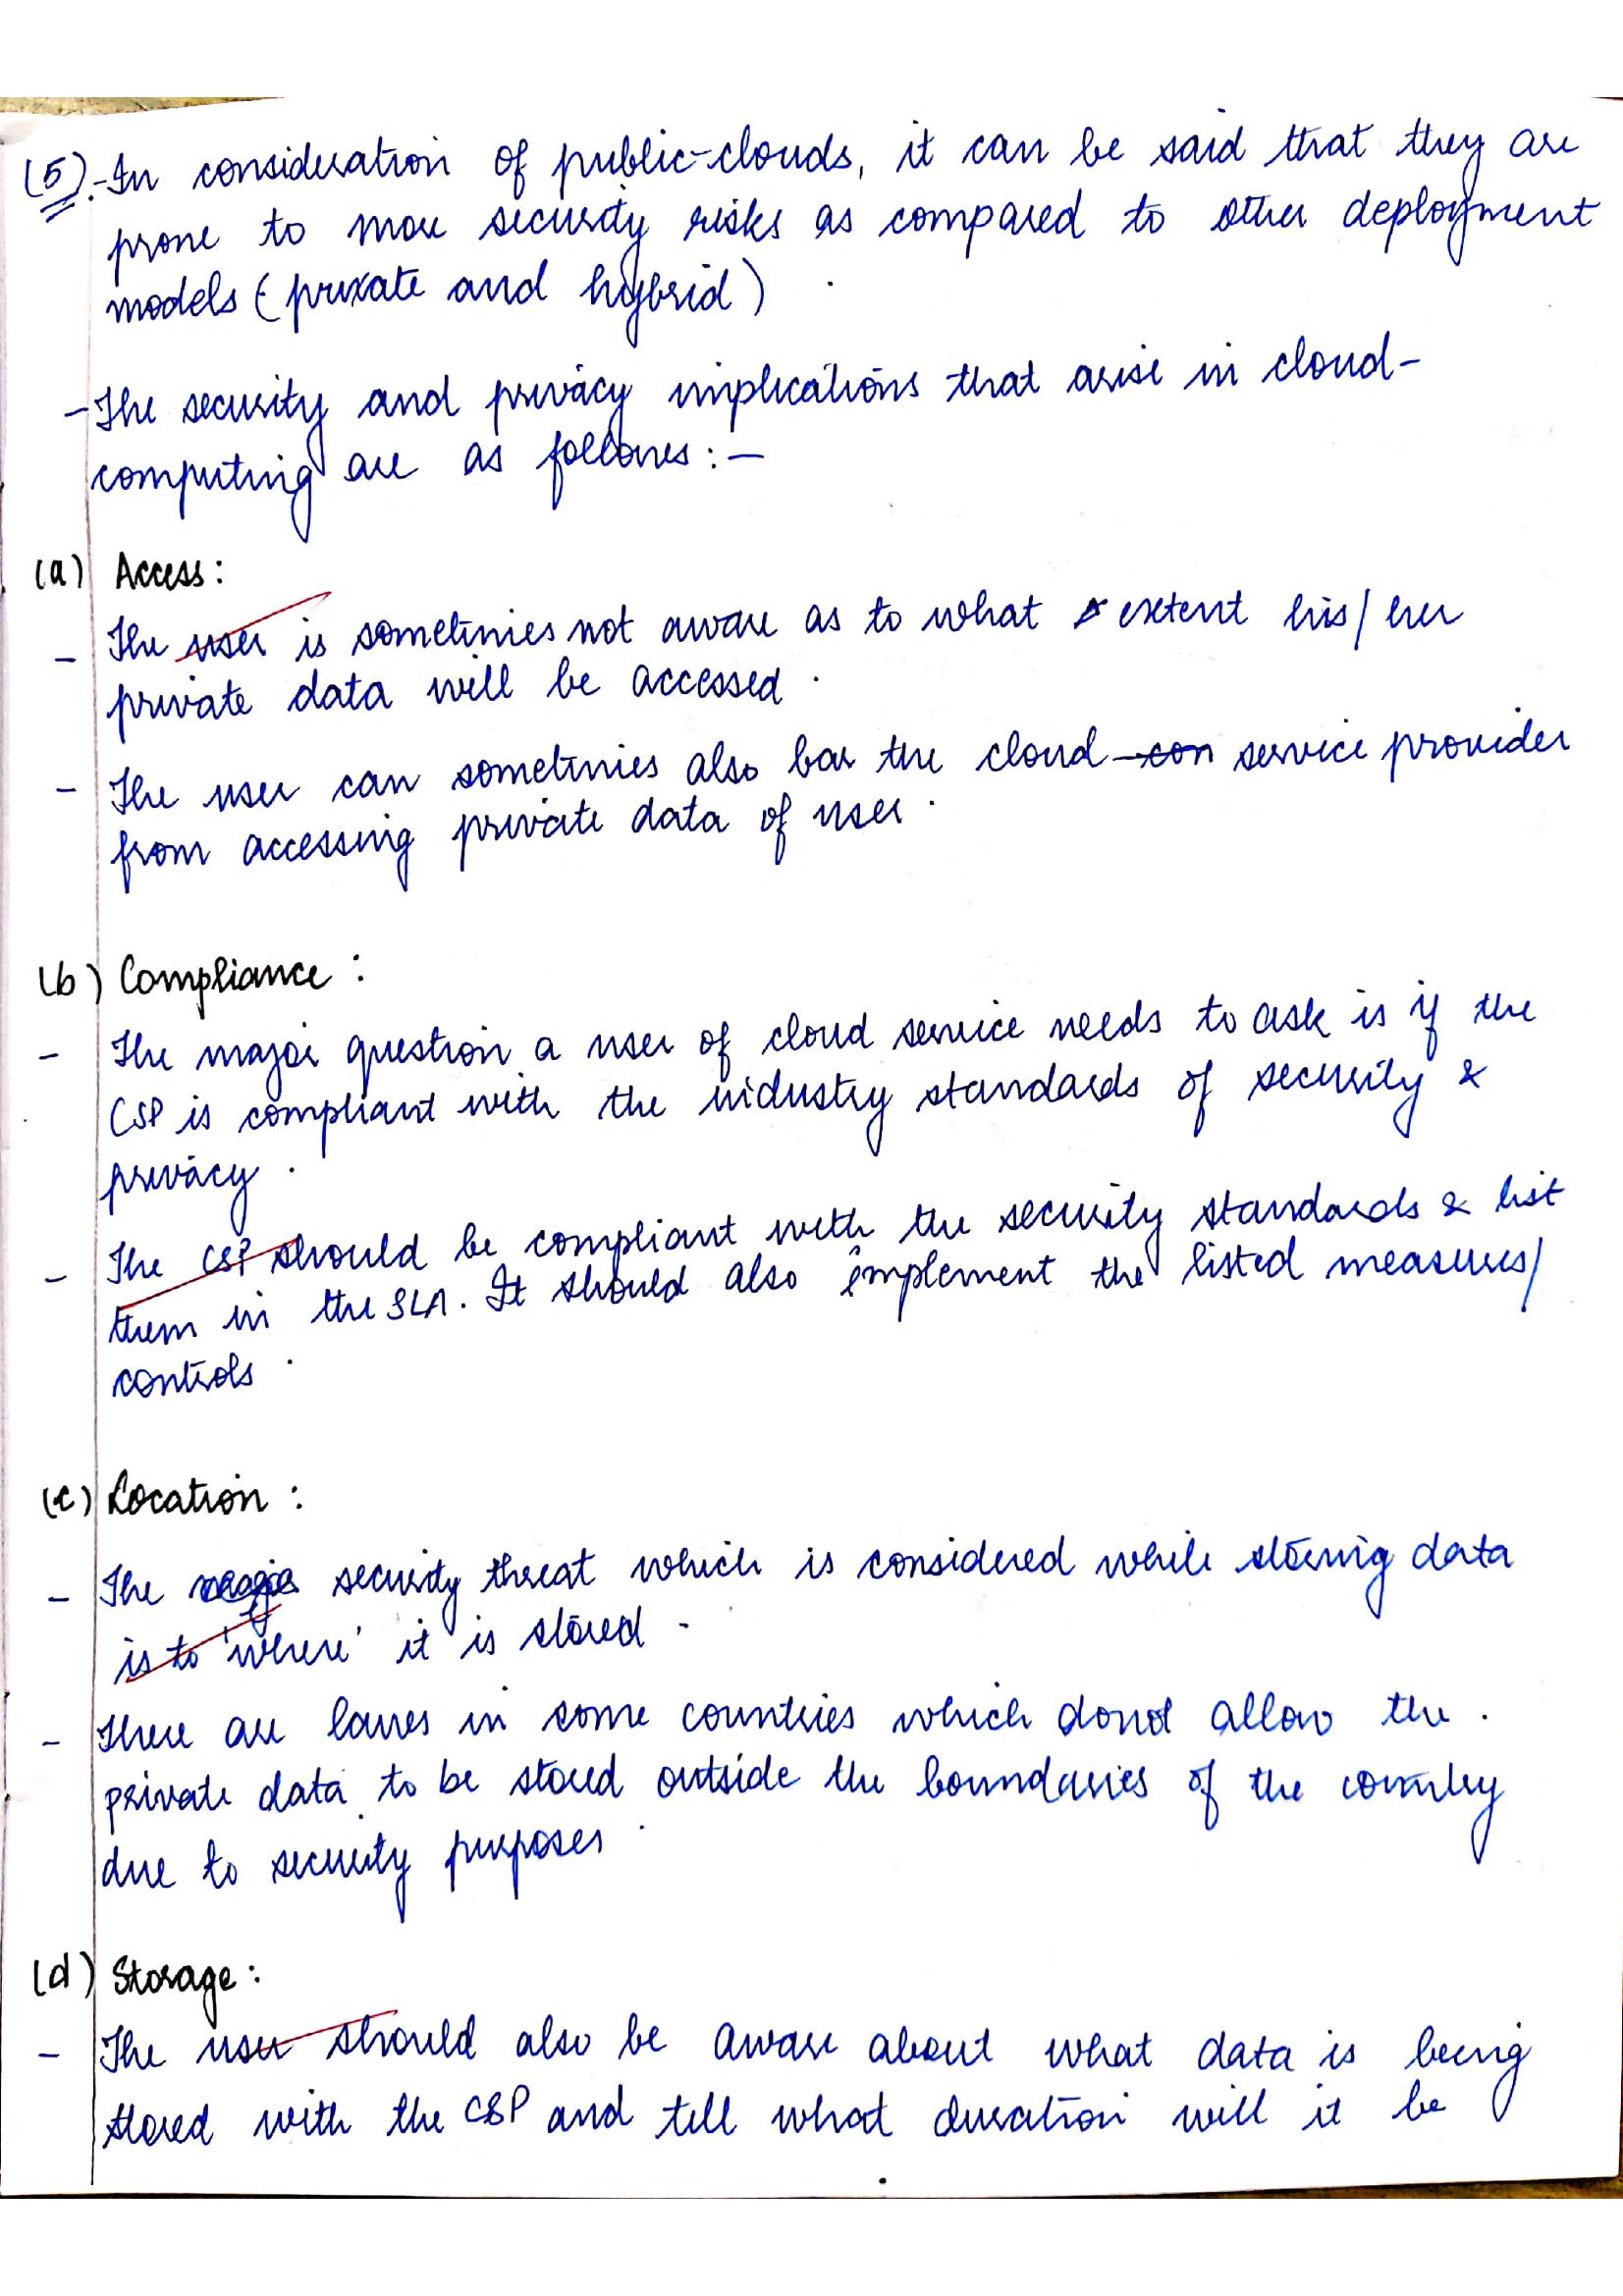 (5).- In consideration of public-clouds, it can be said that they are
prone to more security risks as compared to other deployment
models (private and hybrid)
- The security and privacy implications that arise in cloud-
computing are as follows : -
(a) Access :
- The user is sometimes not aware as to what extent his/her
private data will be accessed .
- The user can sometimes also bar the cloud con service provider
from accessing private data of user .
(b) Compliance :
- The major question a user of cloud service needs to ask is if the
CSP is compliant with the industry standards of security &
privacy .
- The CSP should be compliant with the security standards & list
them in the SLA. It should also implement the listed measures/
controls .
(c) Location :
- The security threat which is considered while storing data
is to 'where' it is stored .
- There are laws in some countries which donot allow the
private data to be stored outside the boundaries of the country
due to security purposes .
(d) Storage :
- The user should also be aware about what data is being
stored with the CSP and till what duration will it be